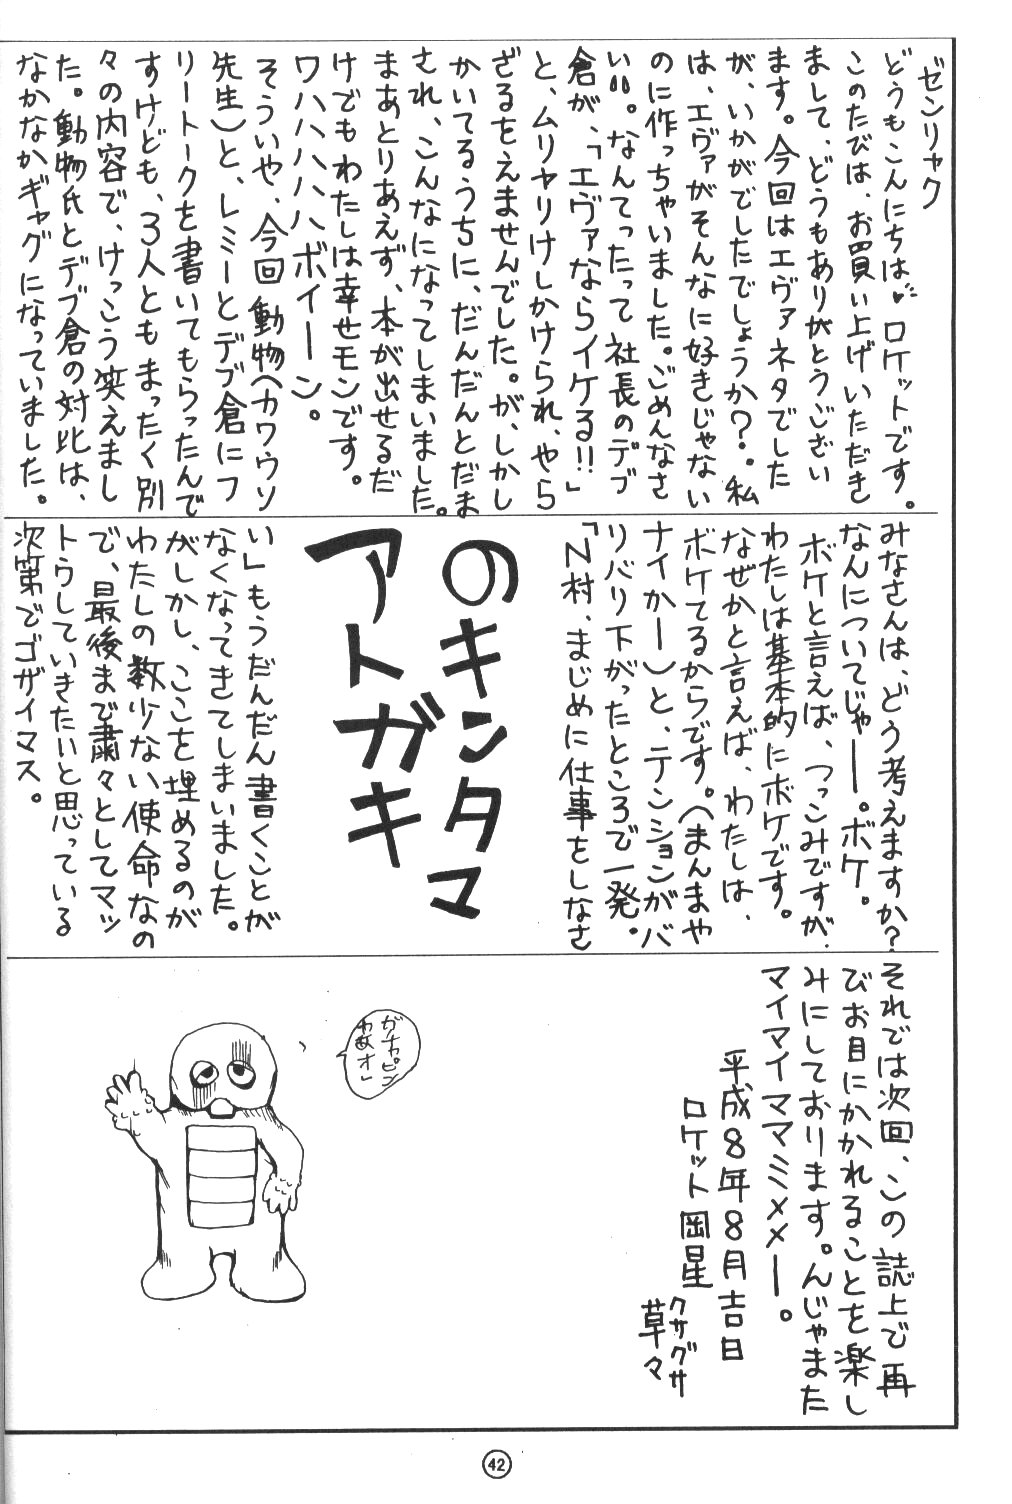 ゼンリャク
どうもこんにちは。ロケットです。
このたびは、お買い上げいただき
まして、どうもありがとうござい
ます。今回はエヴァネタでした
が、いかがでしたでしょうか?。私
は、エヴァがそんなに好きじゃない
のに作っちゃいました。ごめんなさ
い!!。なんてったって社長のデブ
倉が、「エヴァならイケる!!」
と、ムリヤリけしかけられ、やら
ざるをえませんでした。が、しかし
かいてるうちに、だんだんとだま
され、こんなになってしまいました。
まあとりあえず、本が出せるだ
けでもわたしは幸せモンです。
ワハハハハハボイーン。
そういや、今回動物(カワウソ
先生)と、レミーとデブ倉にフ
リートークを書いてもらったんで
すけども、3人ともまったく別
々の内容で、けっこう笑えまし
た。動物氏とデブ倉の対比は、
なかなかギャグになっていました。
みなさんは、どう考えますか?
なんについてじゃー。ボケ。
ボケと言えば、つっこみですが、
わたしは基本的にボケです。
なぜかと言えば、わたしは、
ボケてるからです。(まんまや
ナイかー)と、テンションがバ
リバリ下がったところで一発。
「N村、まじめに仕事をしなさ
のキンタマ
アトガキ
い」もうだんだん書くことが
なくなってきてしまいました。
がしかし、ここを埋めるのが
わたしの数少ない使命なの
で、最後まで粛々としてマッ
トウしていきたいと思っている
次第でゴザイマス。
それでは次回、この誌上で再
びお目にかかれることを楽し
みにしております。んじゃまた
マイマイママミメメー。
平成8年8月吉日
ロケット岡星
クサグサ
草々
ガチャピン
だわオレ
42